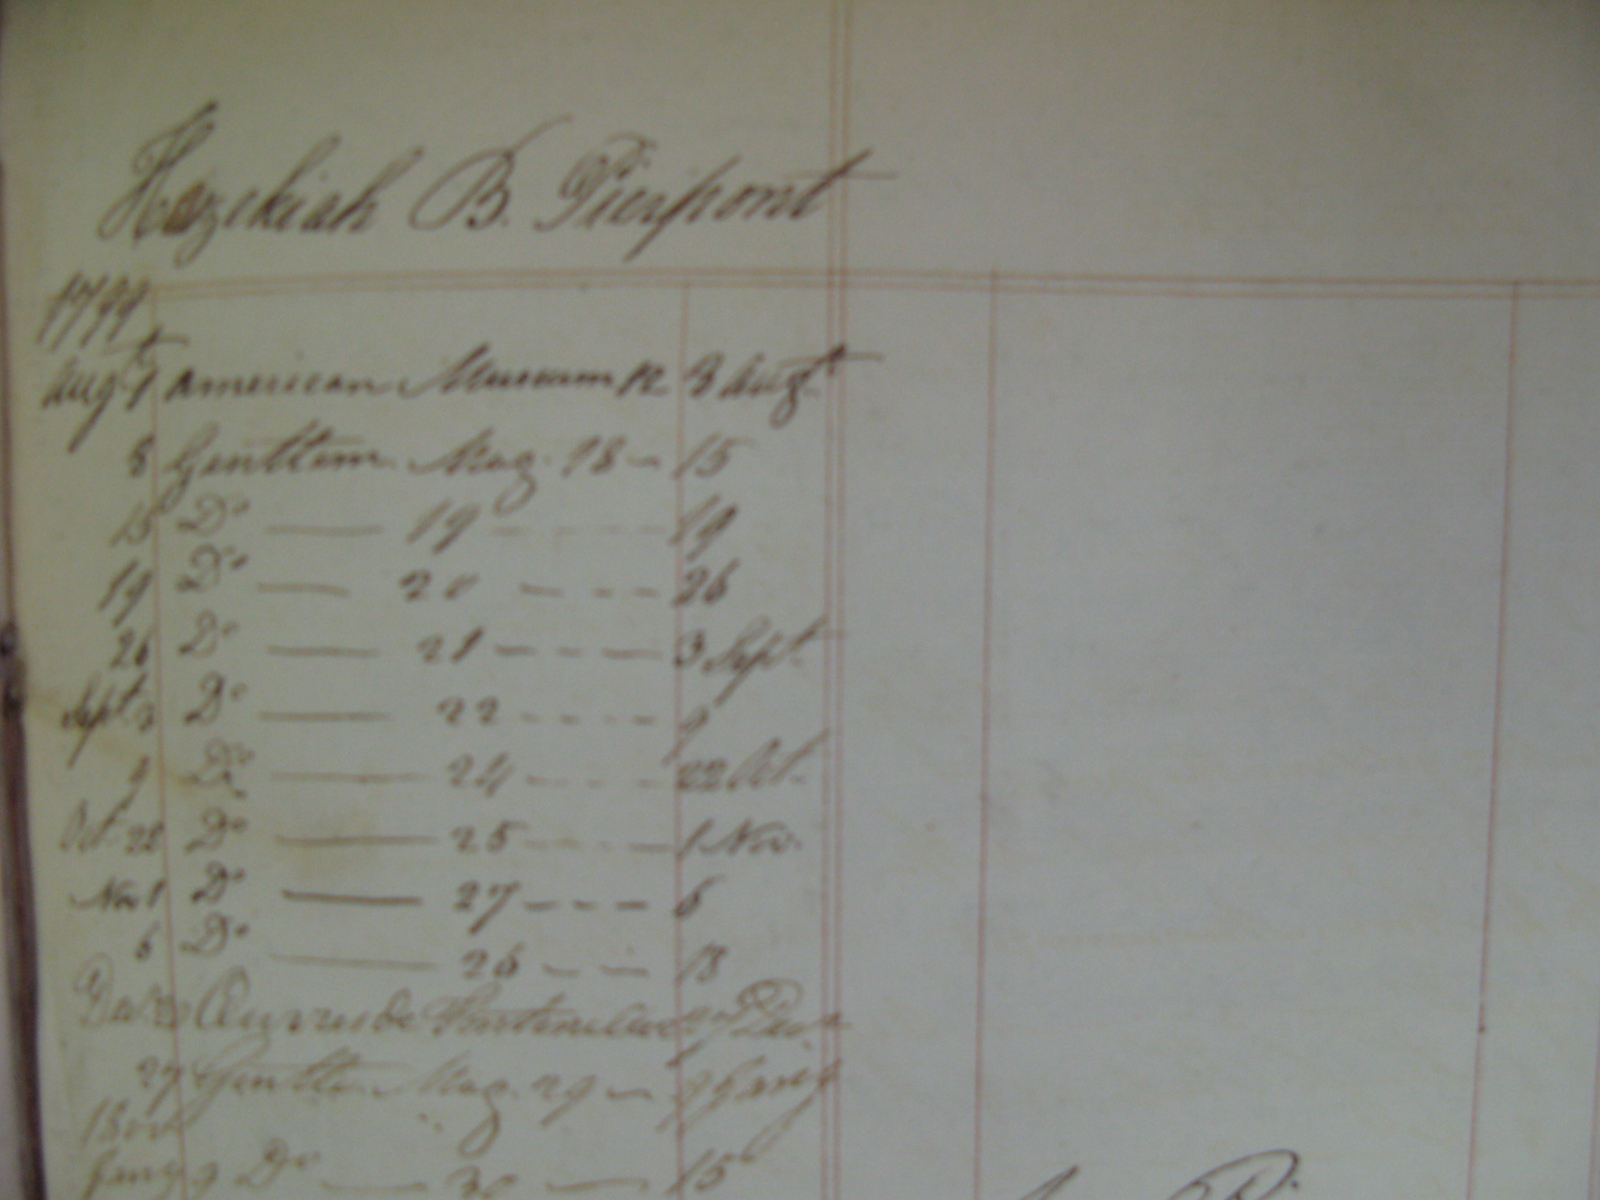 Hezekiah B. Pierpont
1799
Augt 1 American Museum 12 3 Augt
8 Gentlem Mag. 18 — 15
15 Do — 19 - - - 19
19 Do — 20 - - - 26
26 Do — 21 - - - 3 Sept.
Sept 3 Do — 22 - - - 9
9 Do — 24 - - - 22 Oct.
Oct 22 Do — 25 - - - 1 Nov.
Nov 1 Do — 27 - - - 6
6 Do — 26 - - - 18
Oeuvres de Fontenelle 27 Decr
27 Gentlm Mag. 29 — 9 Jany
1800
Jany 9 Do — 30 — 15